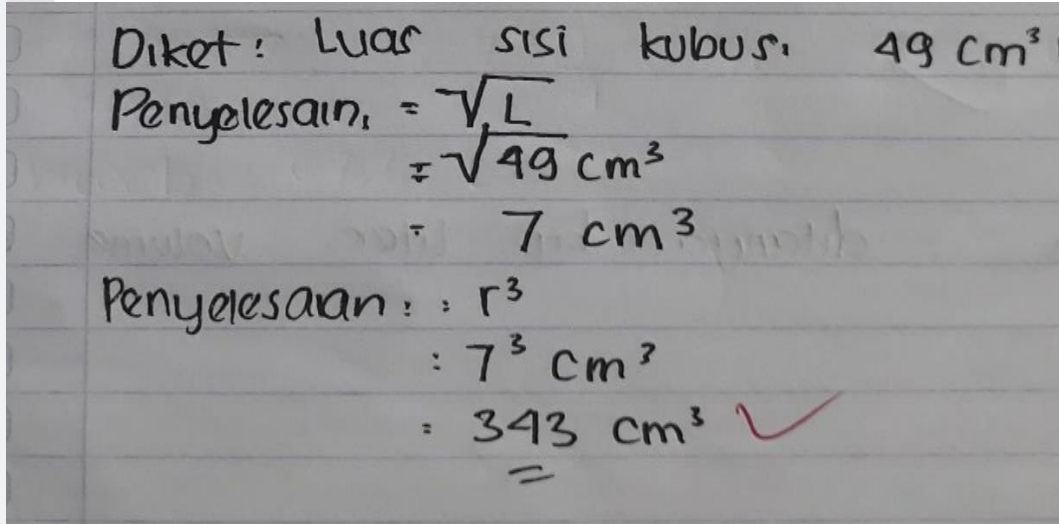 Diket: Luas sisi kubus. 49 cm³
Penyelesain. = √L
= √49 cm³
= 7 cm³
Penyelesaian : : r³
: 7³ cm³
= 343 cm³